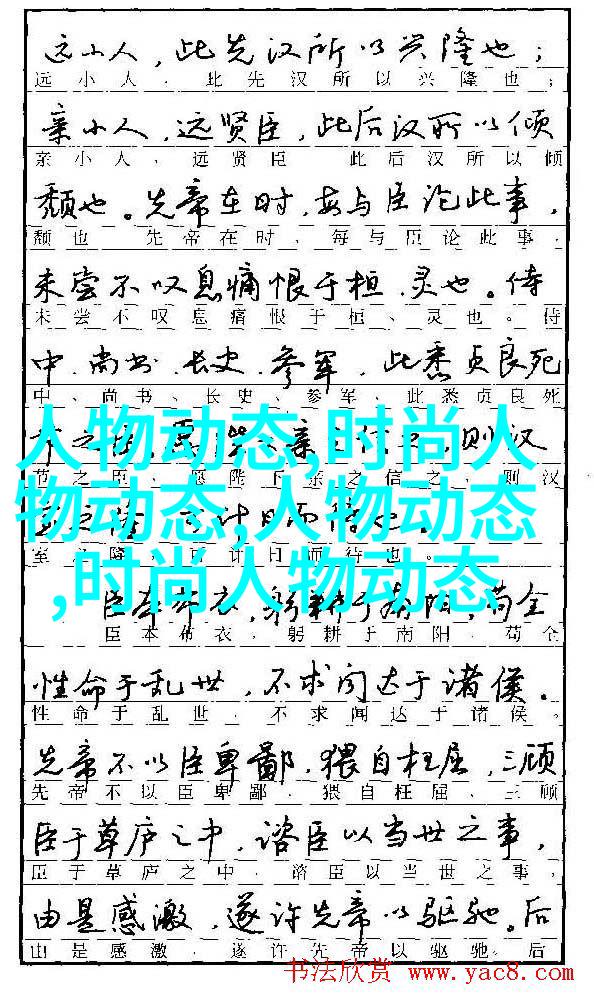 远小人，此先汉所以兴隆也；
远小人，此先汉所以兴隆也；
亲小人，远贤臣，此后汉所以倾
亲小人、远贤臣 此后汉所以倾
颓也。先帝在时，每与臣论此事，
颓也 先帝在时，每与臣论此事，
未尝不叹息痛恨于桓、灵也。侍
未尝不叹息痛恨于桓、灵也。侍
中、尚书、长史、参军，此悉贞良死
中、尚书、长史、参军、此悉贞良死
人物动态,时尚人
物动态,人物动态
,时尚人物动态
则汉
节之臣，愿陛下亲之信之，则汉
室之隆，可计日而待也。
臣本布衣，躬耕于南阳，苟全
臣本布衣，躬耕于南阳，苟全
性命于乱世，不求闻达于诸侯。
性命于乱世，不求闻达于诸侯。
先帝不以臣卑鄙，猥自枉屈，三顾
先帝不以臣卑鄙，猥自枉屈、三顾
臣于草庐之中，谘臣以当世之事，
臣于草庐之中，谘臣以当世之事，
由是感激，遂许先帝以驱驰。后
由是感激，遂许先帝以驱驰。后
书法欣赏 www.yac8.com